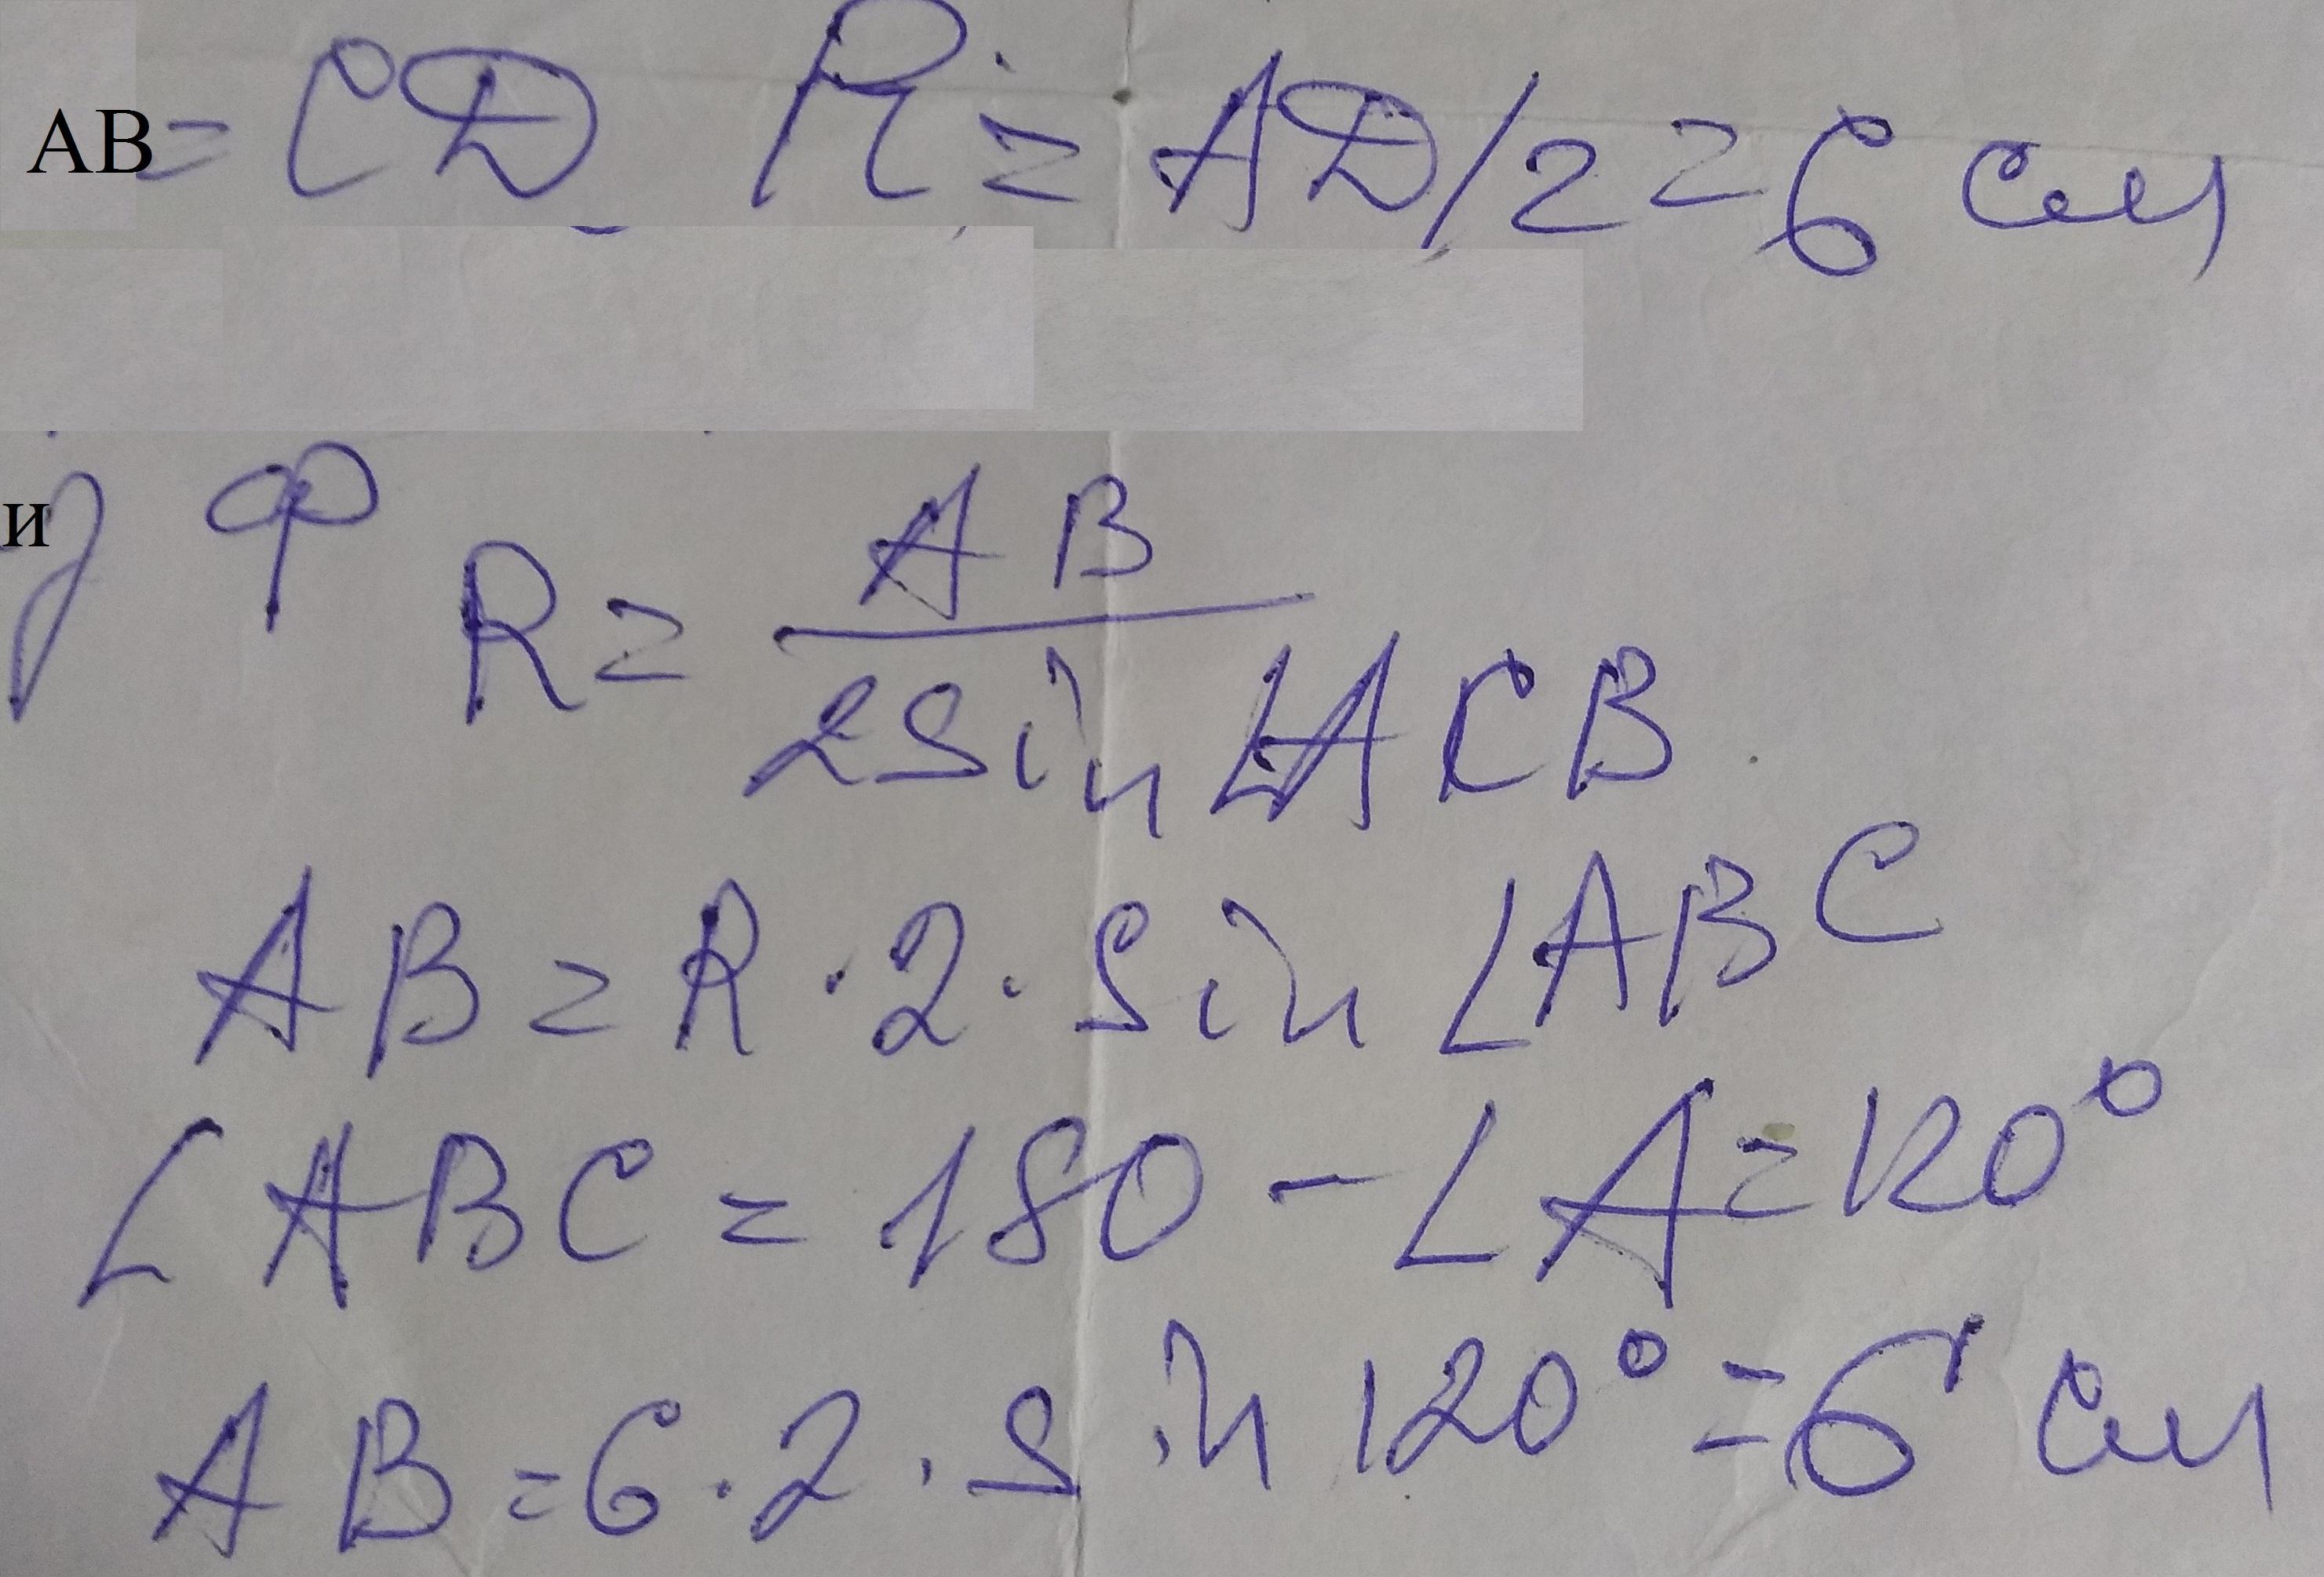 AB = CD R = AD/2 = 6 см
из ф R = AB / 2sin∠ACB
AB = R · 2 · sin ∠ABC
∠ABC = 180 - ∠A = 120°
AB = 6 · 2 · sin 120° = 6 см